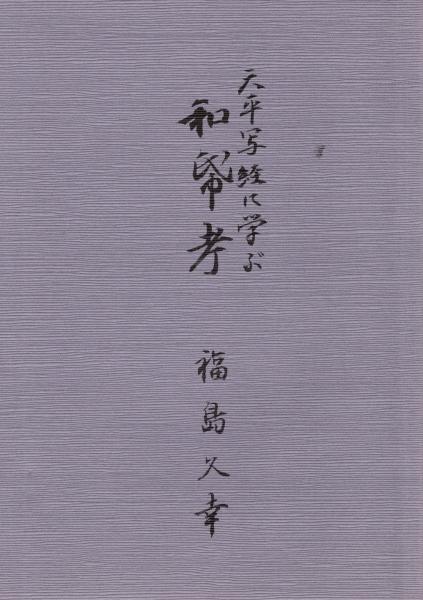 天平写経に学ぶ
和帋考
福島久幸